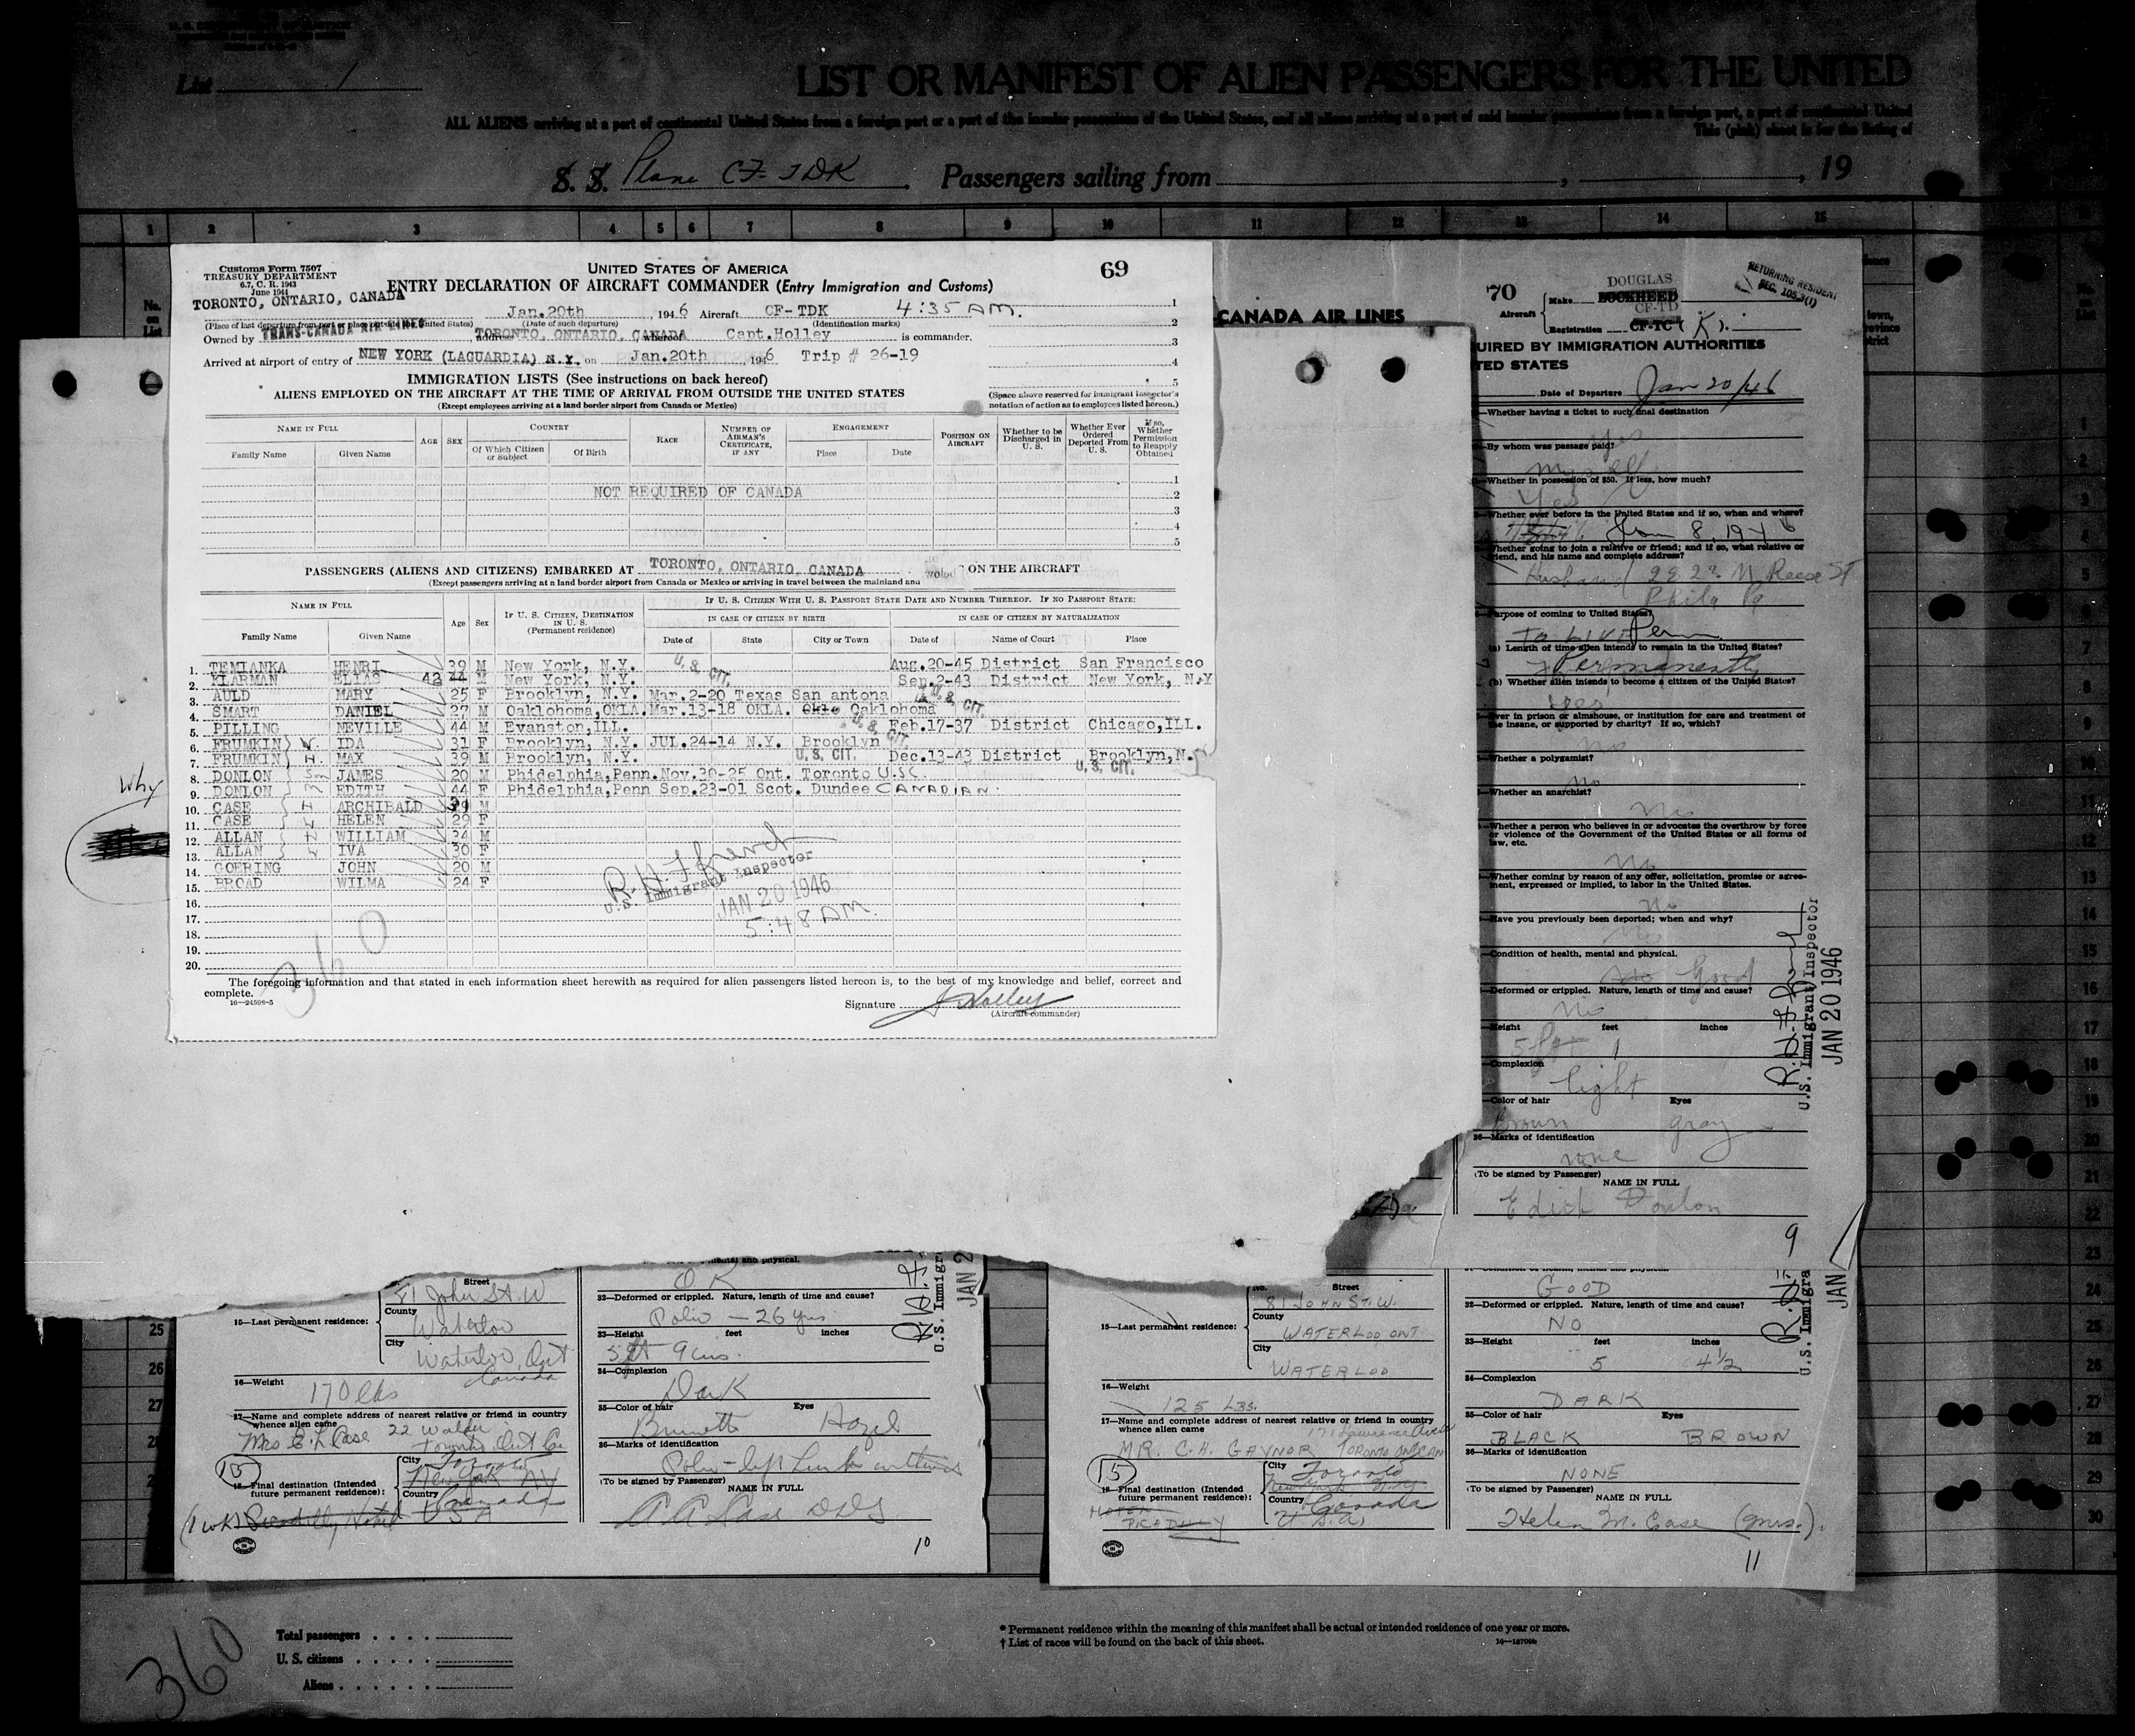 List 1
LIST OR MANIFEST OF ALIEN PASSENGERS FOR THE UNITED
ALL ALIENS arriving at a port of continental United States from a foreign port or a port of the insular possessions of the United States, and all aliens arriving at a port of said insular possessions from a foreign port, a port of continental United
This (pink) sheet is for the listing of
S. S. Plane CF-TDK . Passengers sailing from , , 19
1 2 3 4 5 6 7 8 9 10 11 12 13 14 15
No. on List
Customs Form 7507
TREASURY DEPARTMENT
6.7, C. R. 1943
June 1944
UNITED STATES OF AMERICA
69
ENTRY DECLARATION OF AIRCRAFT COMMANDER (Entry Immigration and Customs)
TORONTO, ONTARIO, CANADA Jan.20th , 194 6 Aircraft CF-TDK 4:35 AM.
(Place of last departure from port or place outside the United States) (Date of such departure) (Identification marks)
Owned by TRANS-CANADA AIR LINES address TORONTO, ONTARIO, CANADA whereof Capt.Holley is commander.
Arrived at airport of entry of NEW YORK (LAGUARDIA) N.Y. on Jan.20th , 194 6 Trip # 26-19
1
2
3
4
5
IMMIGRATION LISTS (See instructions on back hereof)
ALIENS EMPLOYED ON THE AIRCRAFT AT THE TIME OF ARRIVAL FROM OUTSIDE THE UNITED STATES
(Except employees arriving at a land border airport from Canada or Mexico)
(Space above reserved for immigrant inspector's notation of action as to employees listed hereon.)
NAME IN FULL AGE SEX COUNTRY RACE NUMBER OF AIRMAN'S CERTIFICATE, IF ANY ENGAGEMENT POSITION ON AIRCRAFT Whether to be Discharged in U. S. Whether Ever Ordered Deported From U. S. If so, Whether Permission to Reapply Obtained
Family Name Given Name Of Which Citizen or Subject Of Birth Place Date
1
NOT REQUIRED OF CANADA 2
3
4
5
PASSENGERS (ALIENS AND CITIZENS) EMBARKED AT TORONTO, ONTARIO, CANADA ON THE AIRCRAFT
(Except passengers arriving at a land border airport from Canada or Mexico or arriving in travel between the mainland and
NAME IN FULL Age Sex IF U. S. CITIZEN, DESTINATION IN U. S. (Permanent residence) IF U. S. CITIZEN WITH U. S. PASSPORT STATE DATE AND NUMBER THEREOF. IF NO PASSPORT STATE:
IN CASE OF CITIZEN BY BIRTH IN CASE OF CITIZEN BY NATURALIZATION
Family Name Given Name Date of State City or Town Date of Name of Court Place
1. TEMIANKA HENRI 39 M New York, N.Y. U.S. CIT. Aug.20-45 District San Francisco
2. KLARMAN ELIAS 43 44 M New York, N.Y. Sep.2-43 District New York, N.Y
3. AULD MARY 25 F Brooklyn, N.Y. Mar.2-20 Texas San antona U.S. CIT.
4. SMART DANIEL 27 M Oaklohoma,OKLA. Mar.13-18 OKLA. Okla Oaklohoma
5. PILLING NEVILLE 44 M Evanston,ILL. U.S. CIT. Feb.17-37 District Chicago,ILL.
6. FRUMKIN W. IDA 31 F Brooklyn, N.Y. JUL.24-14 N.Y. Brooklyn
7. FRUMKIN H. MAX 39 M Brooklyn, N.Y. U.S. CIT. Dec.13-43 District Brooklyn,N.Y
U.S. CIT.
8. DONLON Son JAMES 20 M Phidelphia,Penn. Nov.30-25 Ont. Toronto U.S.C.
9. DONLON M EDITH 44 F Phidelphia,Penn Sep.23-01 Scot. Dundee CANADIAN.
10. CASE H ARCHIBALD 39 M
11. CASE W HELEN 29 F
12. ALLAN H WILLIAM 34 M
13. ALLAN W IVA 30 F
14. GOERING JOHN 20 M
15. BROAD WILMA 24 F
16.
17.
18.
19.
20.
R.H.
U.S. Immigrant Inspector
JAN 20 1946
5:48 AM.
360
Why
The foregoing information and that stated in each information sheet herewith as required for alien passengers listed hereon is, to the best of my knowledge and belief, correct and complete.
16—24598-5
Signature J Holley
(Aircraft commander)
CANADA AIR LINES
70
DOUGLAS
Aircraft Make LOCKHEED
CF-TD
Registration CF-TC (K).
RETURNING RESIDENT
SEC. 105.3(1)
UIRED BY IMMIGRATION AUTHORITIES
TED STATES
Date of Departure Jan 20/46
Whether having a ticket to such final destination
Yes
By whom was passage paid?
Myself
Whether in possession of $50. If less, how much?
Yes
Whether ever before in the United States and if so, when and where?
Jan 8, 1946
Whether going to join a relative or friend; and if so, what relative or friend, and his name and complete address?
Husband 2922 N Reese St
Phila Pa
Purpose of coming to United States?
To Live Penn
(a) Length of time alien intends to remain in the United States?
Permanently
(b) Whether alien intends to become a citizen of the United States?
Yes
Ever in prison or almshouse, or institution for care and treatment of the insane, or supported by charity? If so, which?
No
Whether a polygamist?
No
Whether an anarchist?
No
Whether a person who believes in or advocates the overthrow by force or violence of the Government of the United States or all forms of law, etc.
No
Whether coming by reason of any offer, solicitation, promise or agreement, expressed or implied, to labor in the United States.
No
Have you previously been deported; when and why?
No
Condition of health, mental and physical.
Good
Deformed or crippled. Nature, length of time and cause?
No
Height feet inches
5 ft 1
Complexion
light
Color of hair Eyes
Brown gray
36—Marks of identification
none
(To be signed by Passenger)
NAME IN FULL
Edith Donlon
9
U.S. Immigrant Inspector
JAN 20 1946
Street
81 John St. W
15—Last permanent residence: County
Waterloo
City
Waterloo, Ont
Canada
16—Weight
170 lbs
17—Name and complete address of nearest relative or friend in country whence alien came
Mrs E. L Case 22
Toronto Ont Ca
15
18—Final destination (Intended future permanent residence): City Toronto
New York NY
Country Canada
USA
(1 wk) Piccadilly Hotel
mental and physical.
OK
32—Deformed or crippled. Nature, length of time and cause?
Polio — 26 yrs
33—Height feet inches
5 ft 9 ins.
34—Complexion
Dark
35—Color of hair Eyes
Brunette Hazel
36—Marks of identification
Polio - left
(To be signed by Passenger)
NAME IN FULL
A A Case DDS
10
U.S. Immigr
JAN 2
No. Street
81 JOHN ST. W.
15—Last permanent residence: County
WATERLOO ONT
City
WATERLOO
16—Weight
125 Lbs.
17—Name and complete address of nearest relative or friend in country whence alien came
171 Lawrence
MR. C.A. GAYNOR TORONTO ONT CAN
15
18—Final destination (Intended future permanent residence): City Toronto
New York N.Y.
Country Canada
U.S.A.
HOTEL
PICADILLY
GOOD
32—Deformed or crippled. Nature, length of time and cause?
NO
33—Height feet inches
5 4½
34—Complexion
DARK
35—Color of hair Eyes
BLACK BROWN
36—Marks of identification
NONE
(To be signed by Passenger)
NAME IN FULL
Helen M. Case (Mrs.).
11
U.S. Immigra
JAN
360
Total passengers
U. S. citizens
Aliens
* Permanent residence within the meaning of this manifest shall be actual or intended residence of one year or more.
† List of races will be found on the back of this sheet.